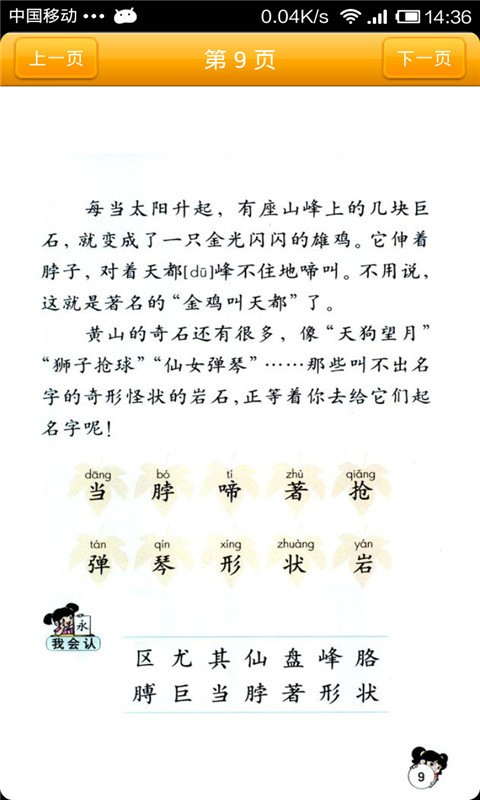 中国移动 ... 0.04K/s 14:36
上一页 第 9 页 下一页
每当太阳升起，有座山峰上的几块巨
石，就变成了一只金光闪闪的雄鸡。它伸着
脖子，对着天都[dū]峰不住地啼叫。不用说，
这就是著名的“金鸡叫天都”了。
黄山的奇石还有很多，像“天狗望月”
“狮子抢球”“仙女弹琴”……那些叫不出名
字的奇形怪状的岩石，正等着你去给它们起
名字呢！
dāng bó tí zhù qiǎng
当 脖 啼 著 抢
tán qín xíng zhuàng yán
弹 琴 形 状 岩
永
我会认
区 尤 其 仙 盘 峰 胳
膊 巨 当 脖 著 形 状
9